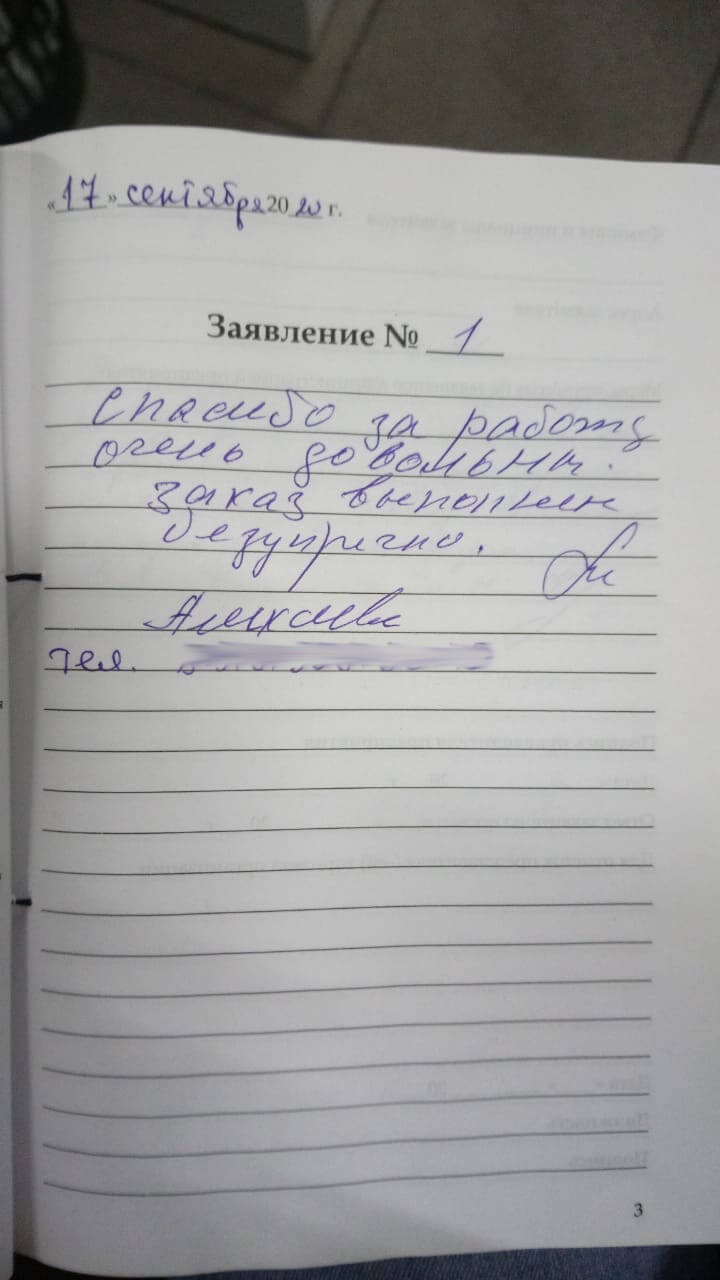 «17» сентября 2020 г.
Заявление № 1
Спасибо за работу
очень довольны.
заказ выполнен
безупречно.
тел.
3